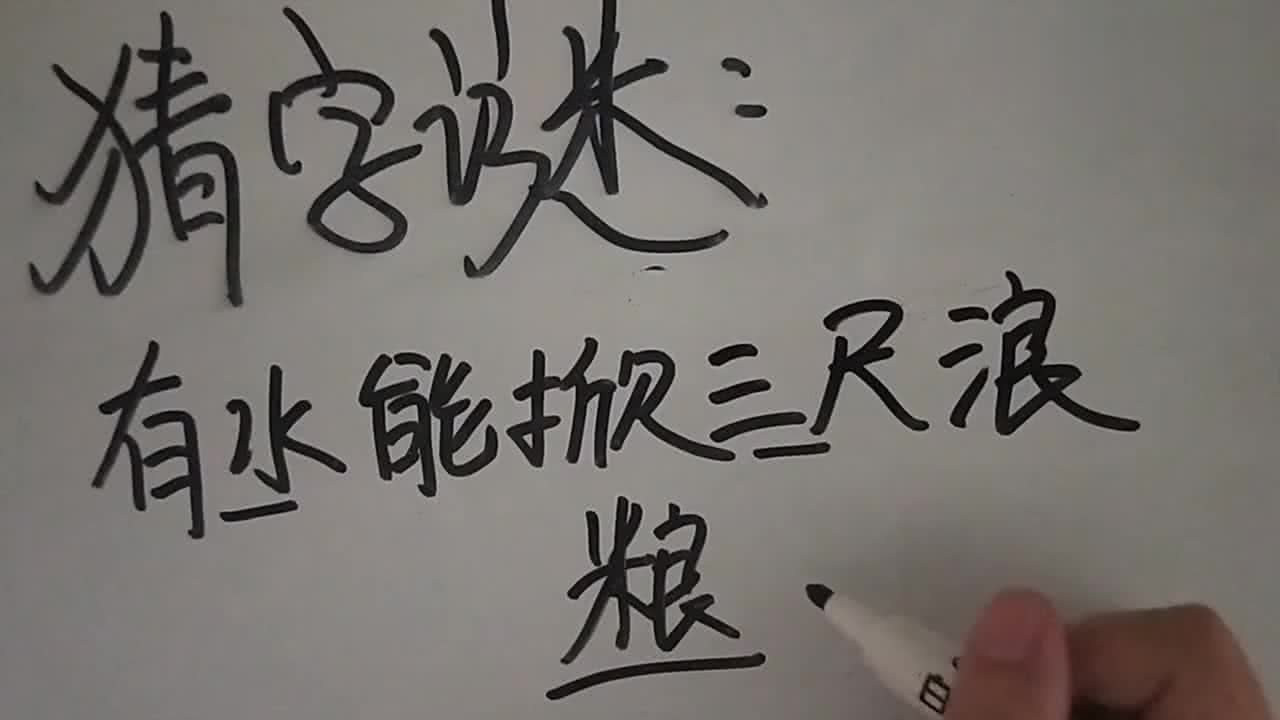 猜字谜:
有水能掀三尺浪
粮